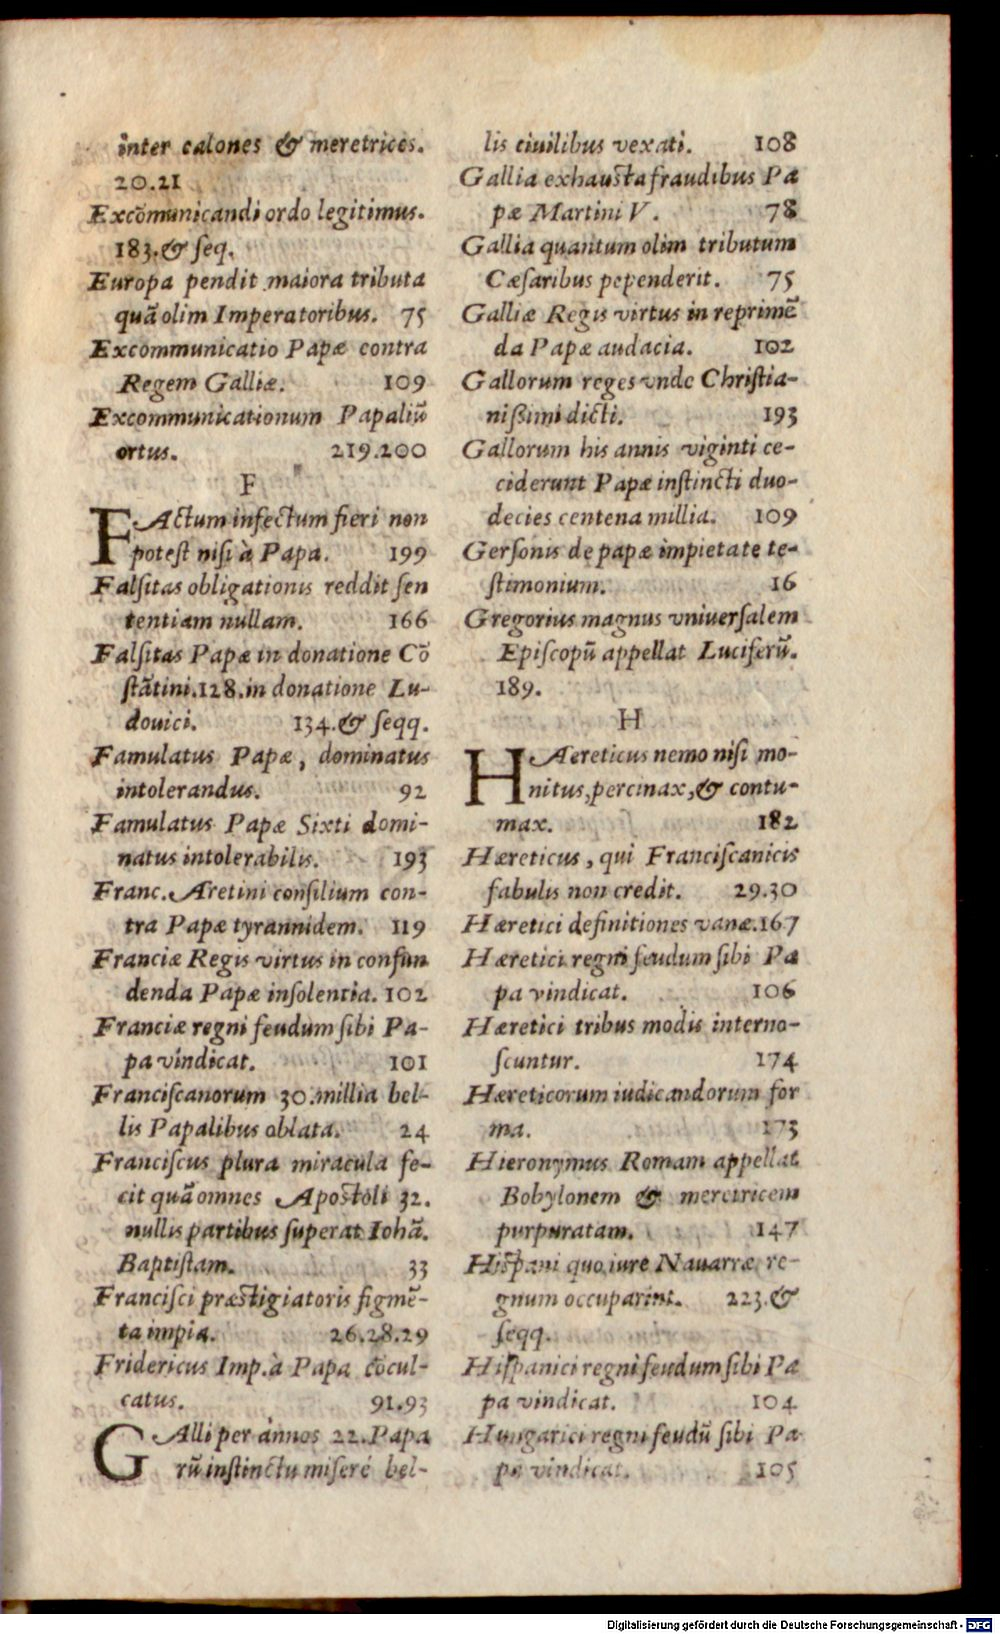 inter calones & meretrices.
20.21
Excōmunicandi ordo legitimus.
183.& ſeq.
Europa pendit maiora tributa
quā olim Imperatoribus. 75
Excommunicatio Papæ contra
Regem Galliæ. 109
Excommunicationum Papaliū
ortus. 219.200
F
FActum infectum fieri non
poteſt niſi à Papa. 199
Falſitas obligationis reddit ſen
tentiam nullam. 166
Falſitas Papæ in donatione Cō
ſtātini.128.in donatione Lu-
douici. 134.& ſeqq.
Famulatus Papæ, dominatus
intolerandus. 92
Famulatus Papæ Sixti domi-
natus intolerabilis. 193
Franc. Aretini conſilium con-
tra Papæ tyrannidem. 119
Franciæ Regis virtus in confun
denda Papæ inſolentia. 102
Franciæ regni feudum ſibi Pa-
pa vindicat. 101
Franciſcanorum 30.millia bel-
lis Papalibus oblata. 24
Franciſcus plura miracula fe-
cit quā omnes Apoſtoli 32.
nullis partibus ſuperat Iohā.
Baptiſtam. 33
Franciſci præſtigiatoris figmē-
ta impia. 26.28.29
Fridericus Imp.à Papa cōcul-
catus. 91.93
GAlli per annos 22. Papa
rū inſtinctu miſerè bel-
lis ciuilibus vexati. 108
Gallia exhauſta fraudibus Pa
pæ Martini V. 78
Gallia quantum olim tributum
Cæſaribus pependerit. 75
Galliæ Regis virtus in reprimē
da Papæ audacia. 102
Gallorum reges vnde Chriſtia-
niſſimi dicti. 193
Gallorum his annis viginti ce-
ciderunt Papæ inſtincti duo-
decies centena millia. 109
Gerſonis de papæ impietate te-
ſtimonium. 16
Gregorius magnus vniuerſalem
Epiſcopū appellat Luciferū.
189.
H
HAereticus nemo niſi mo-
nitus, percinax, & contu-
max. 182
Hæreticus, qui Franciſcanicis
fabulis non credit. 29.30
Hæretici definitiones vanæ.167
Hæretici regni feudum ſibi Pa
pa vindicat. 106
Hæretici tribus modis interno-
ſcuntur. 174
Hæreticorum iudicandorum for
ma. 173
Hieronymus Romam appellat
Bobylonem & meretricem
purpuratam. 147
Hiſpani quo iure Nauarræ re-
gnum occuparint. 223.&
ſeqq.
Hiſpanici regni feudum ſibi Pa
pa vindicat. 104
Hungarici regni feudū ſibi Pa
pa vindicat. 105
Digitalisierung gefördert durch die Deutsche Forschungsgemeinschaft - DFG